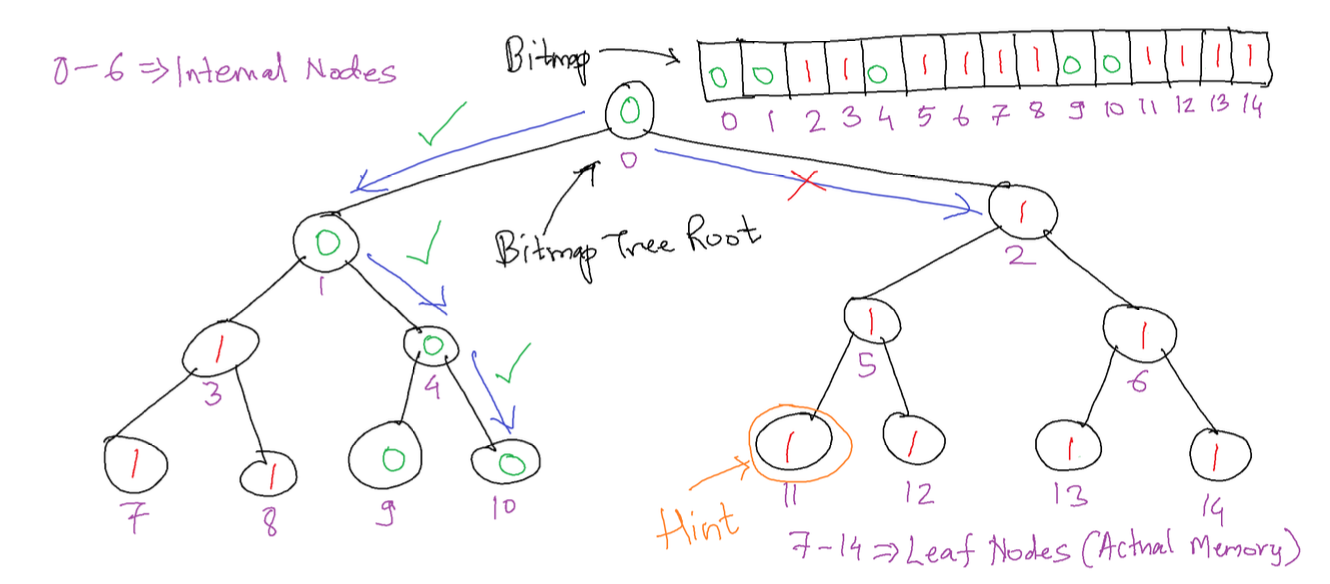 0-6 => Internal Nodes
Bitmap
0 0 1 1 0 1 1 1 1 0 0 1 1 1 1
0 1 2 3 4 5 6 7 8 9 10 11 12 13 14
0
0
Bitmap Tree Root
0
1
1
2
1
3
0
4
1
5
1
6
1
7
1
8
0
9
0
10
1
11
1
12
1
13
1
14
Hint
7-14 => Leaf Nodes (Actual Memory)